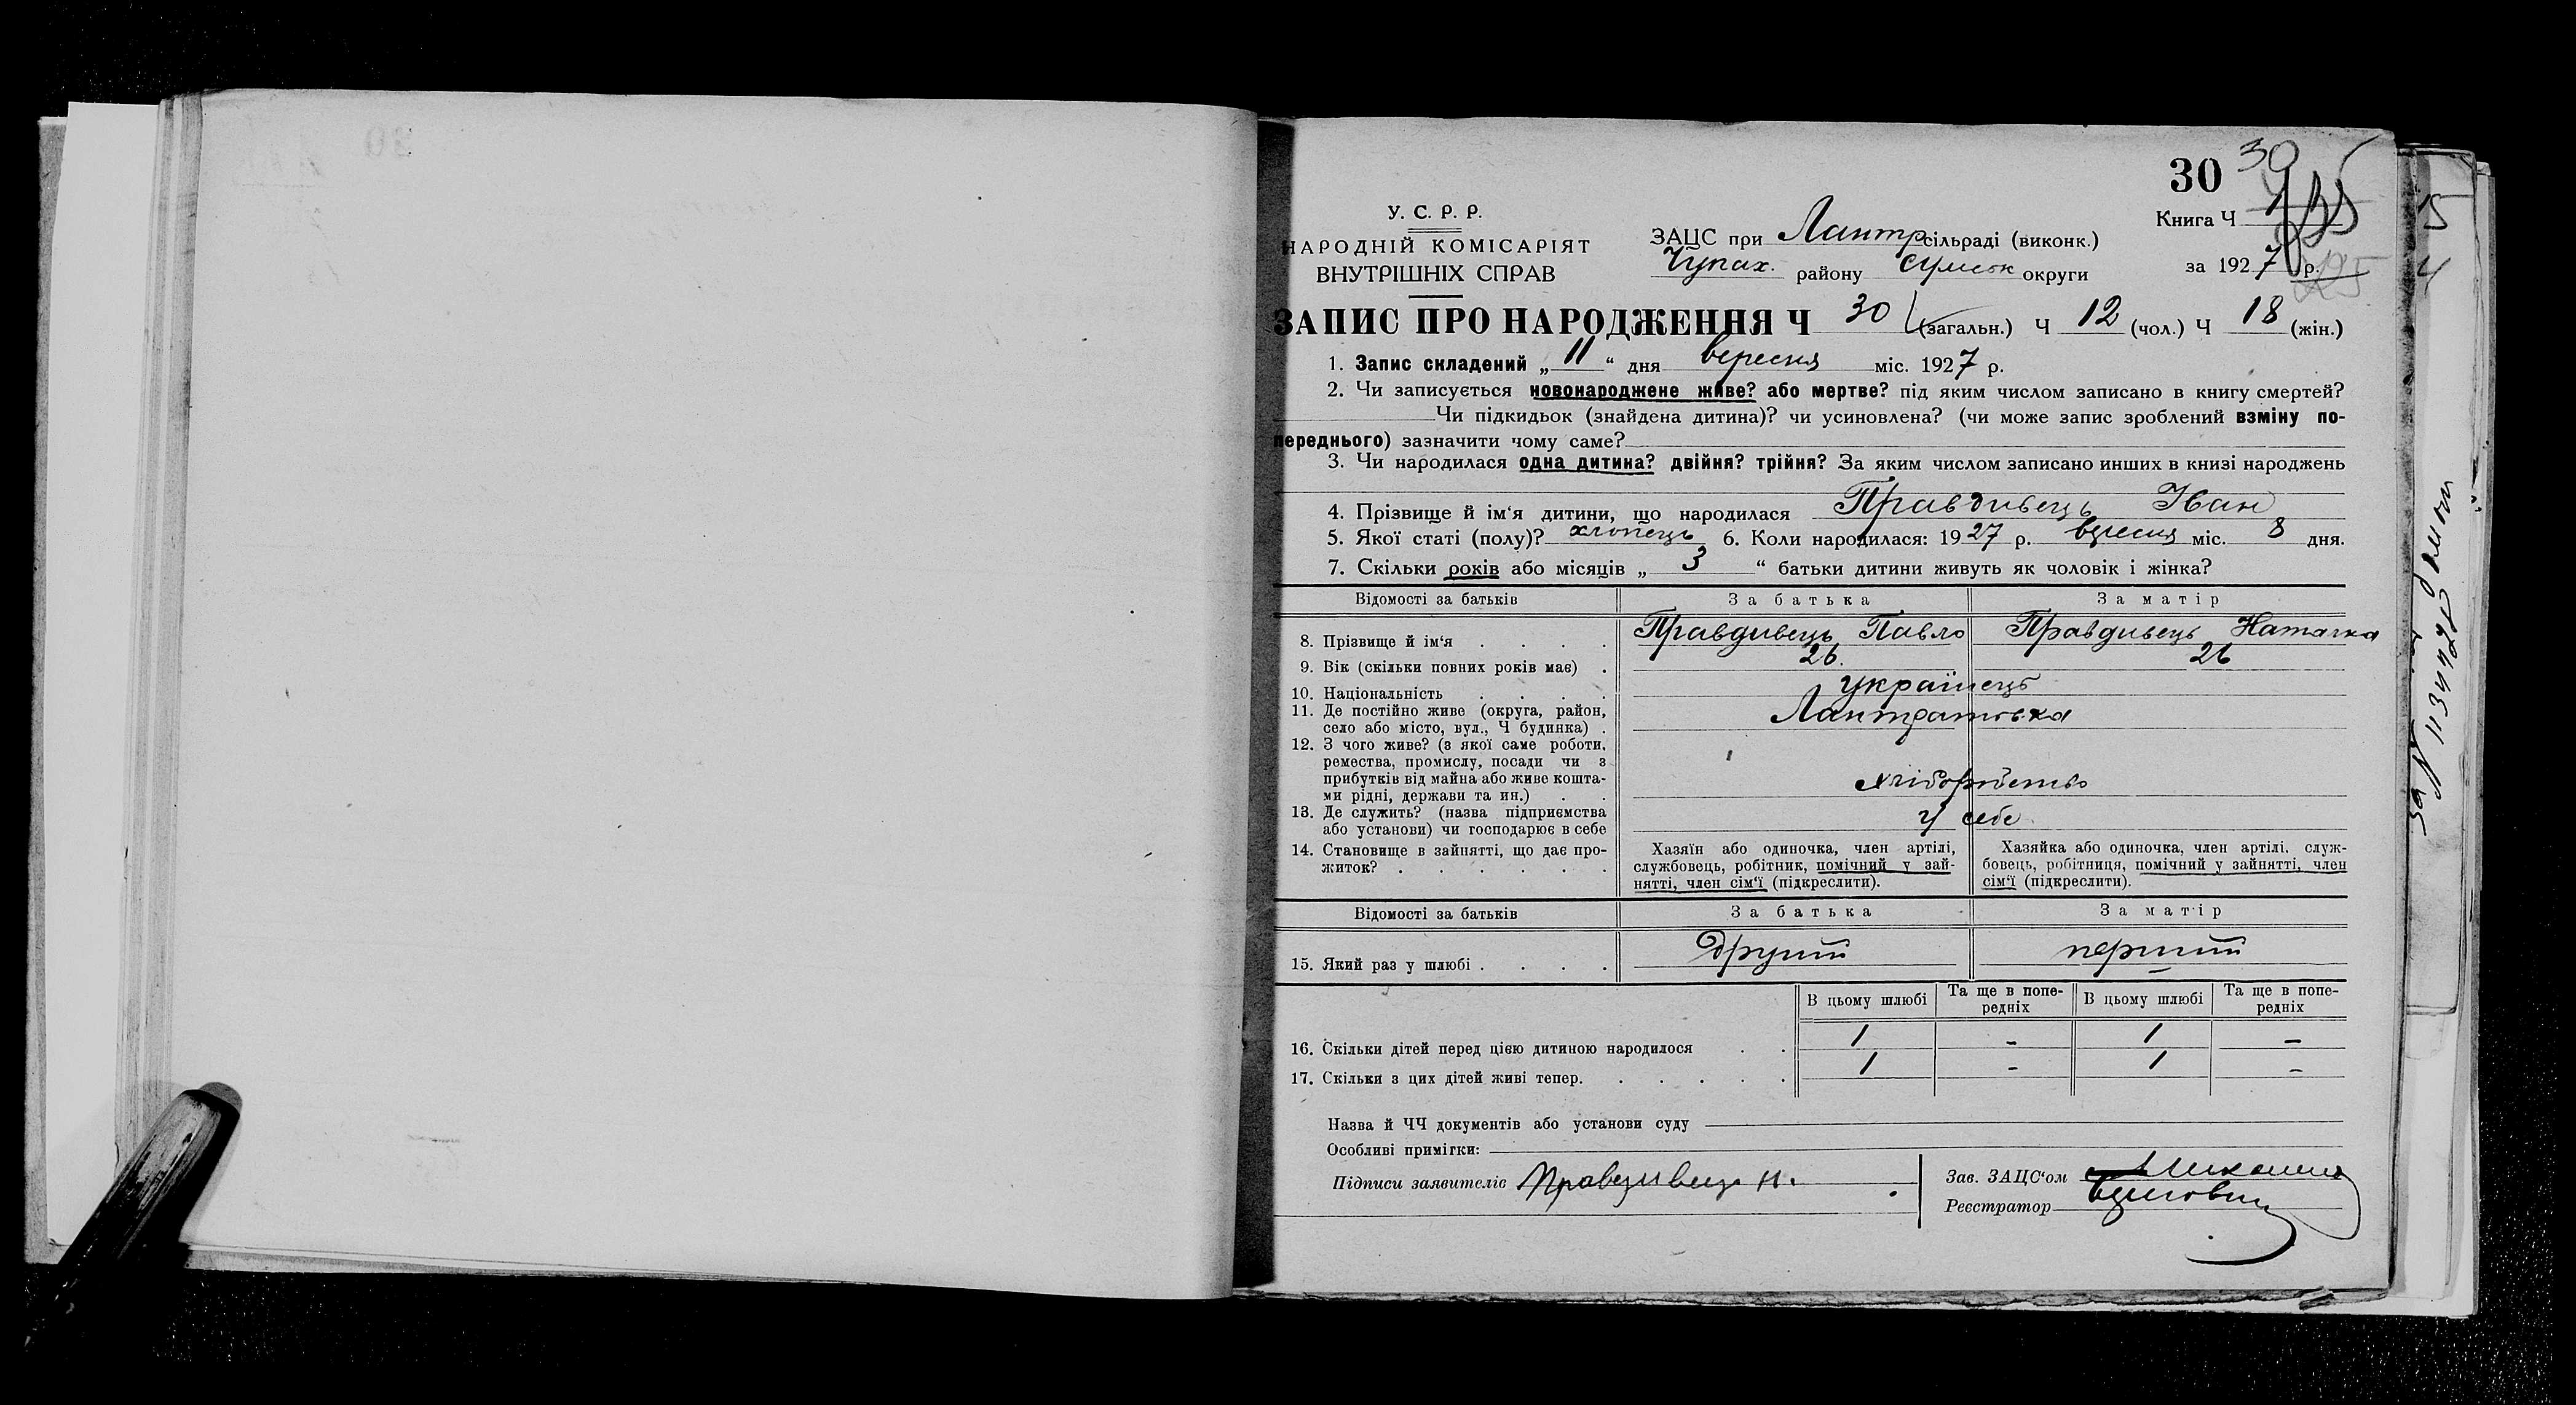 30 30
У. С. Р. Р.
НАРОДНІЙ КОМІСАРІЯТ
ВНУТРІШНІХ СПРАВ
ЗАЦС при Лантр сільраді (виконк.)
Чупах. району Сумськ округи
Книга Ч
за 1927 р.
ЗАПИС ПРО НАРОДЖЕННЯ Ч 30 (загальн.) Ч 12 (чол.) Ч 18 (жін.)
1. Запис складений „11“ дня вересня міс. 1927 р.
2. Чи записується новонароджене живе? або мертве? під яким числом записано в книгу смертей?
Чи підкидьок (знайдена дитина)? чи усиновлена? (чи може запис зроблений взміну по-
переднього) зазначити чому саме?
3. Чи народилася одна дитина? двійня? трійня? За яким числом записано инших в книзі народжень
4. Прізвище й ім‘я дитини, що народилася Правдивець Іван
5. Якої статі (полу)? хлопець 6. Коли народилася: 1927 р. вересня міс. 8 дня.
7. Скільки років або місяців „3“ батьки дитини живуть як чоловік і жінка?
Відомості за батьків За батька За матір
8. Прізвище й ім‘я . . . . Правдивець Павло Правдивець Наталка
9. Вік (скільки повних років має) . 26. 26
10. Національність . . . . українець
11. Де постійно живе (округа, район,
село або місто, вул., Ч будинка) . Лантратовка
12. З чого живе? (з якої саме роботи,
ремества, промислу, посади чи з
прибутків від майна або живе кошта-
ми рідні, держави та ин.) . . хліборобство
13. Де служить? (назва підприємства
або установи) чи господарює в себе у себе
14. Становище в зайнятті, що дає про-
житок? . . . . . .
Хазяїн або одиночка, член артілі,
службовець, робітник, помічний у зай-
нятті, член сім‘ї (підкреслити).
Хазяйка або одиночка, член артілі, служ-
бовець, робітниця, помічний у зайнятті, член
сім‘ї (підкреслити).
Відомості за батьків За батька За матір
15. Який раз у шлюбі . . . . другий перший
В цьому шлюбі Та ще в попе-
редніх В цьому шлюбі Та ще в попе-
редніх
16. Скільки дітей перед цією дитиною народилося . . 1 - 1 -
17. Скільки з цих дітей живі тепер. . . . . . 1 - 1 -
Назва й ЧЧ документів або установи суду
Особливі примітки:
Підписи заявителів Правдивець Н.
Зав. ЗАЦС‘ом
Реєстратор
15
4